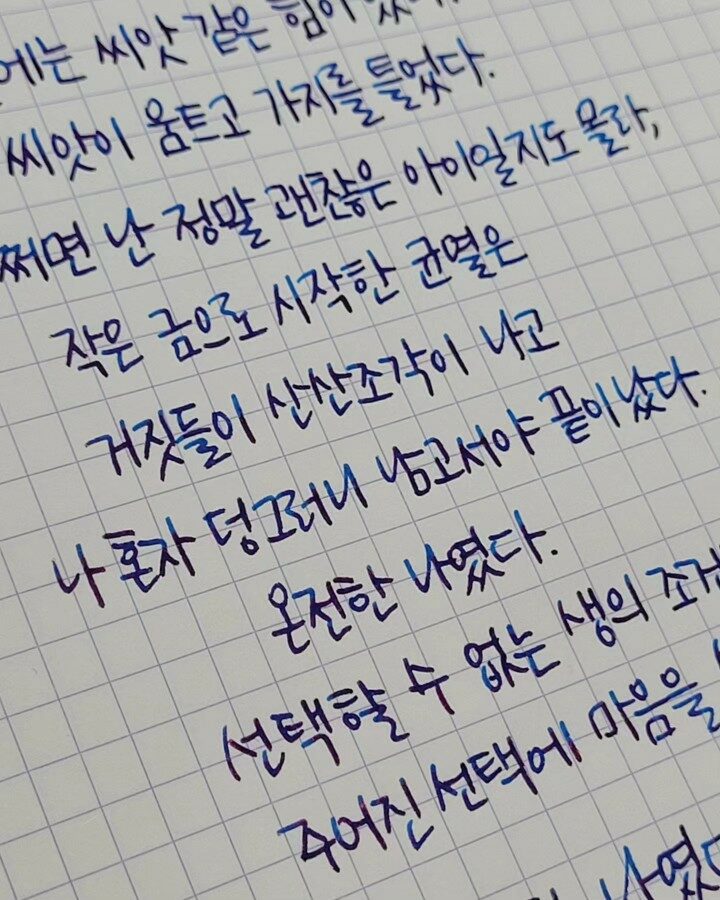 에는 씨앗 같은 힘이
씨앗이 움트고 가지를 틀었다.
쩌면 난 정말 괜찮은 아이일지도 몰라,
작은 금으로 시작한 균열은
거짓들이 산산조각이 나고
나 혼자 덩그러니 남고서야 끝이 났다.
온전한 나였다.
선택할 수 없는 생의 조거
주어진 선택에 마음을
나였다